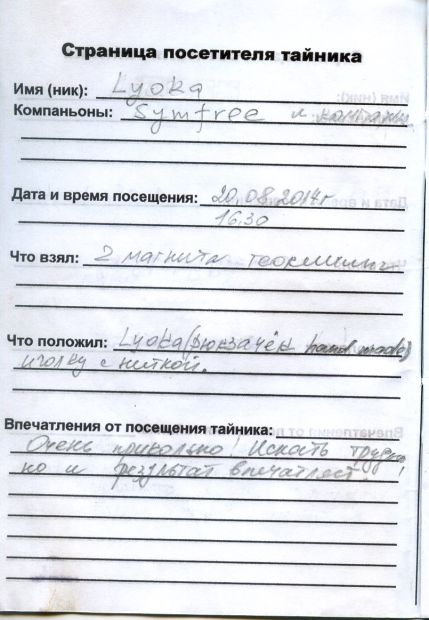 Страница посетителя тайника
Имя (ник): Lyoka
Компаньоны: Symfree и компания
Дата и время посещения: 20.08.2014г
16.30
Что взял: 2 магнита геокешинг
Что положил: Lyoka (рюкзачёк hand made)
иголку с ниткой.
Впечатления от посещения тайника:
Очень прикольно! Искать трудно,
но и результат впечатляет!